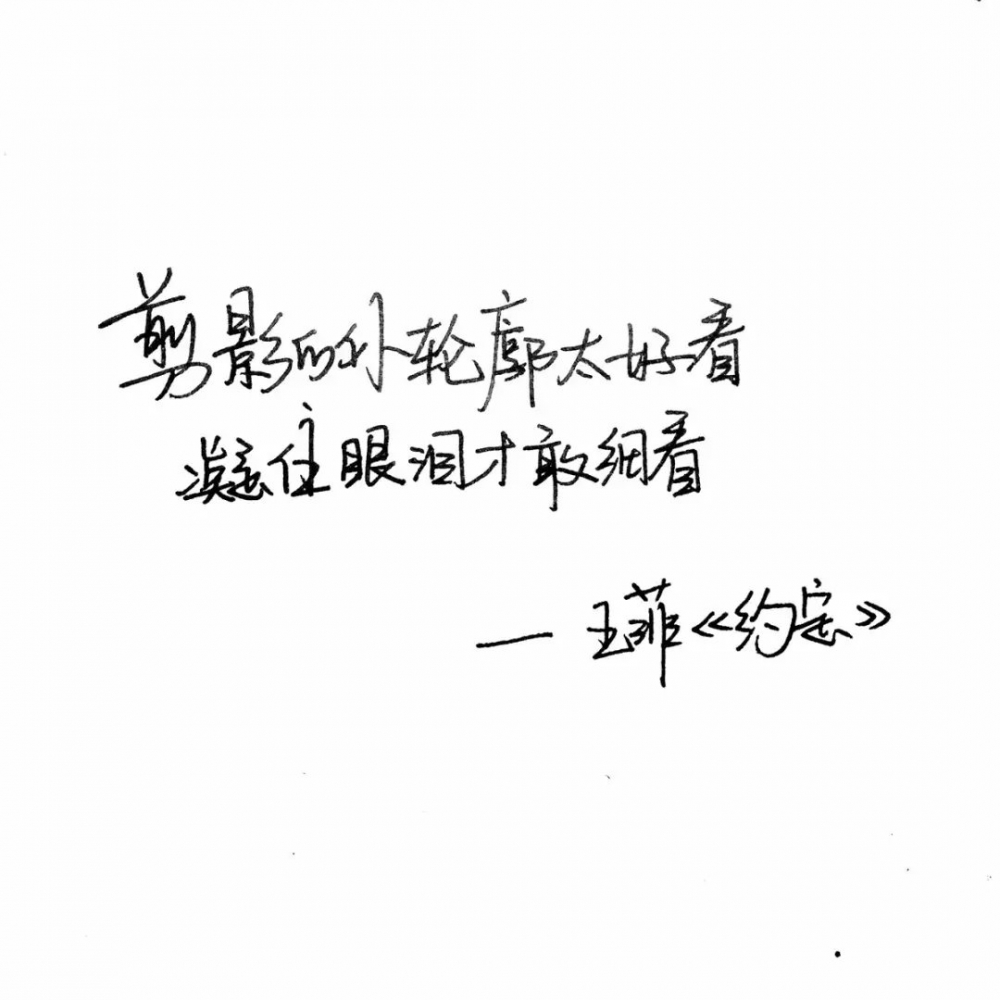 剪影的外轮廓太好看
凝住眼泪才敢细看
— 王菲《约定》